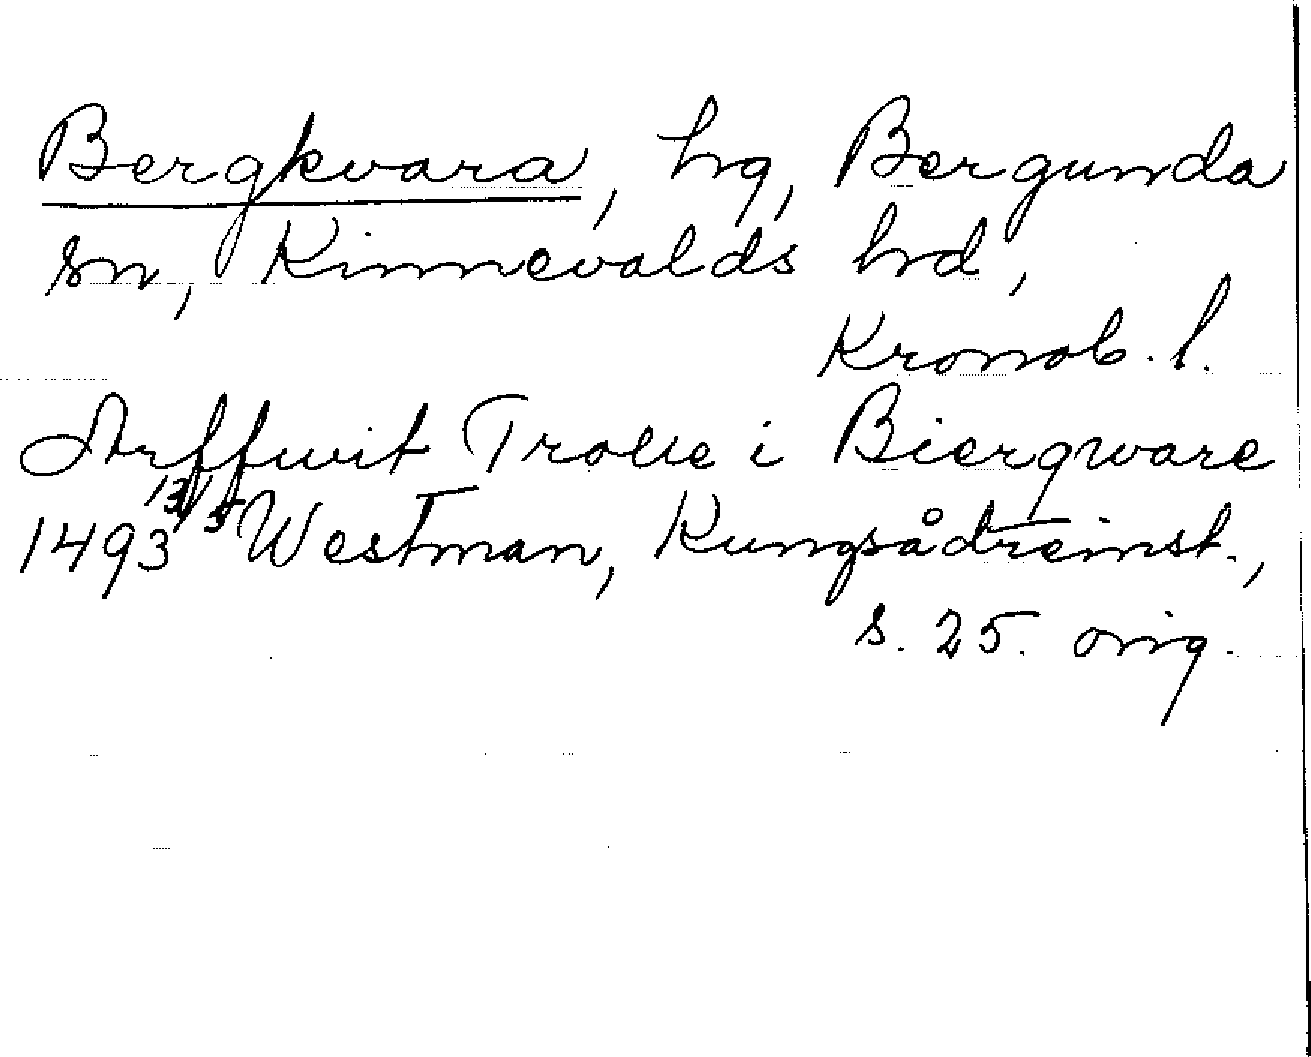 Bergkvara, hg, Bergunda
sn, Kinnevalds hrd,
Kronob. l.
Arffwit Trolle i Biergware
1493 13/5 Westman, Kungsådreinst.,
s. 25. orig.